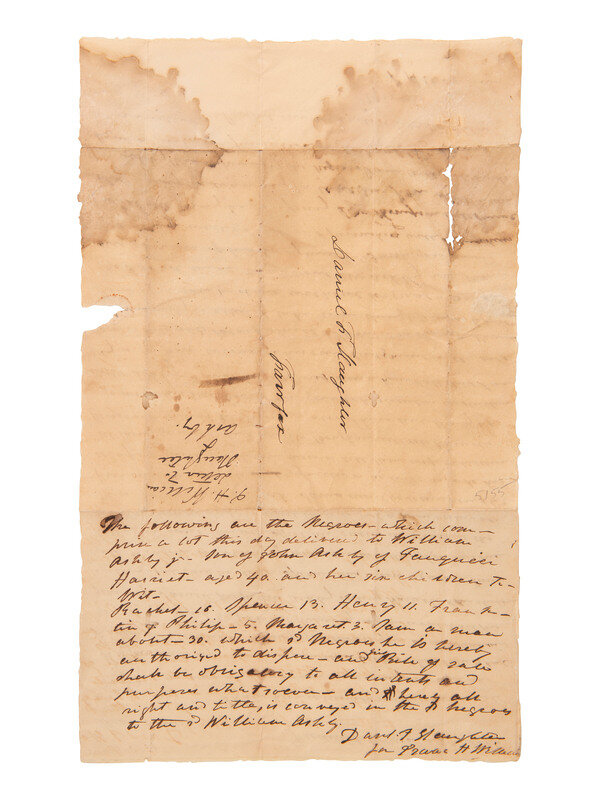 Daniel F Slaughter
Fairfax
J. H. William
letter to
Slaughter
&
Ashby.
5155
The following are the Negroes which com-
prise a lot this day delivered to William
Ashby jr. Son of John Ashby of Fauquier
Harriet aged 40. and her six children to-
wit-
Rachel- 16. Spencer 13. Henry 11. Frank-
lin 7 Philip- 5. Margaret 3. Sam a man
about- 30. which sd Negroes he is hereby
authorized to dispose- and Bill of sale
shall be obligatory to all intents and
purposes whatsoever- and hereby all
right and title, is conveyed in the sd negroes
to the sd William Ashby.
Danl F Slaughter
for Isaac H William